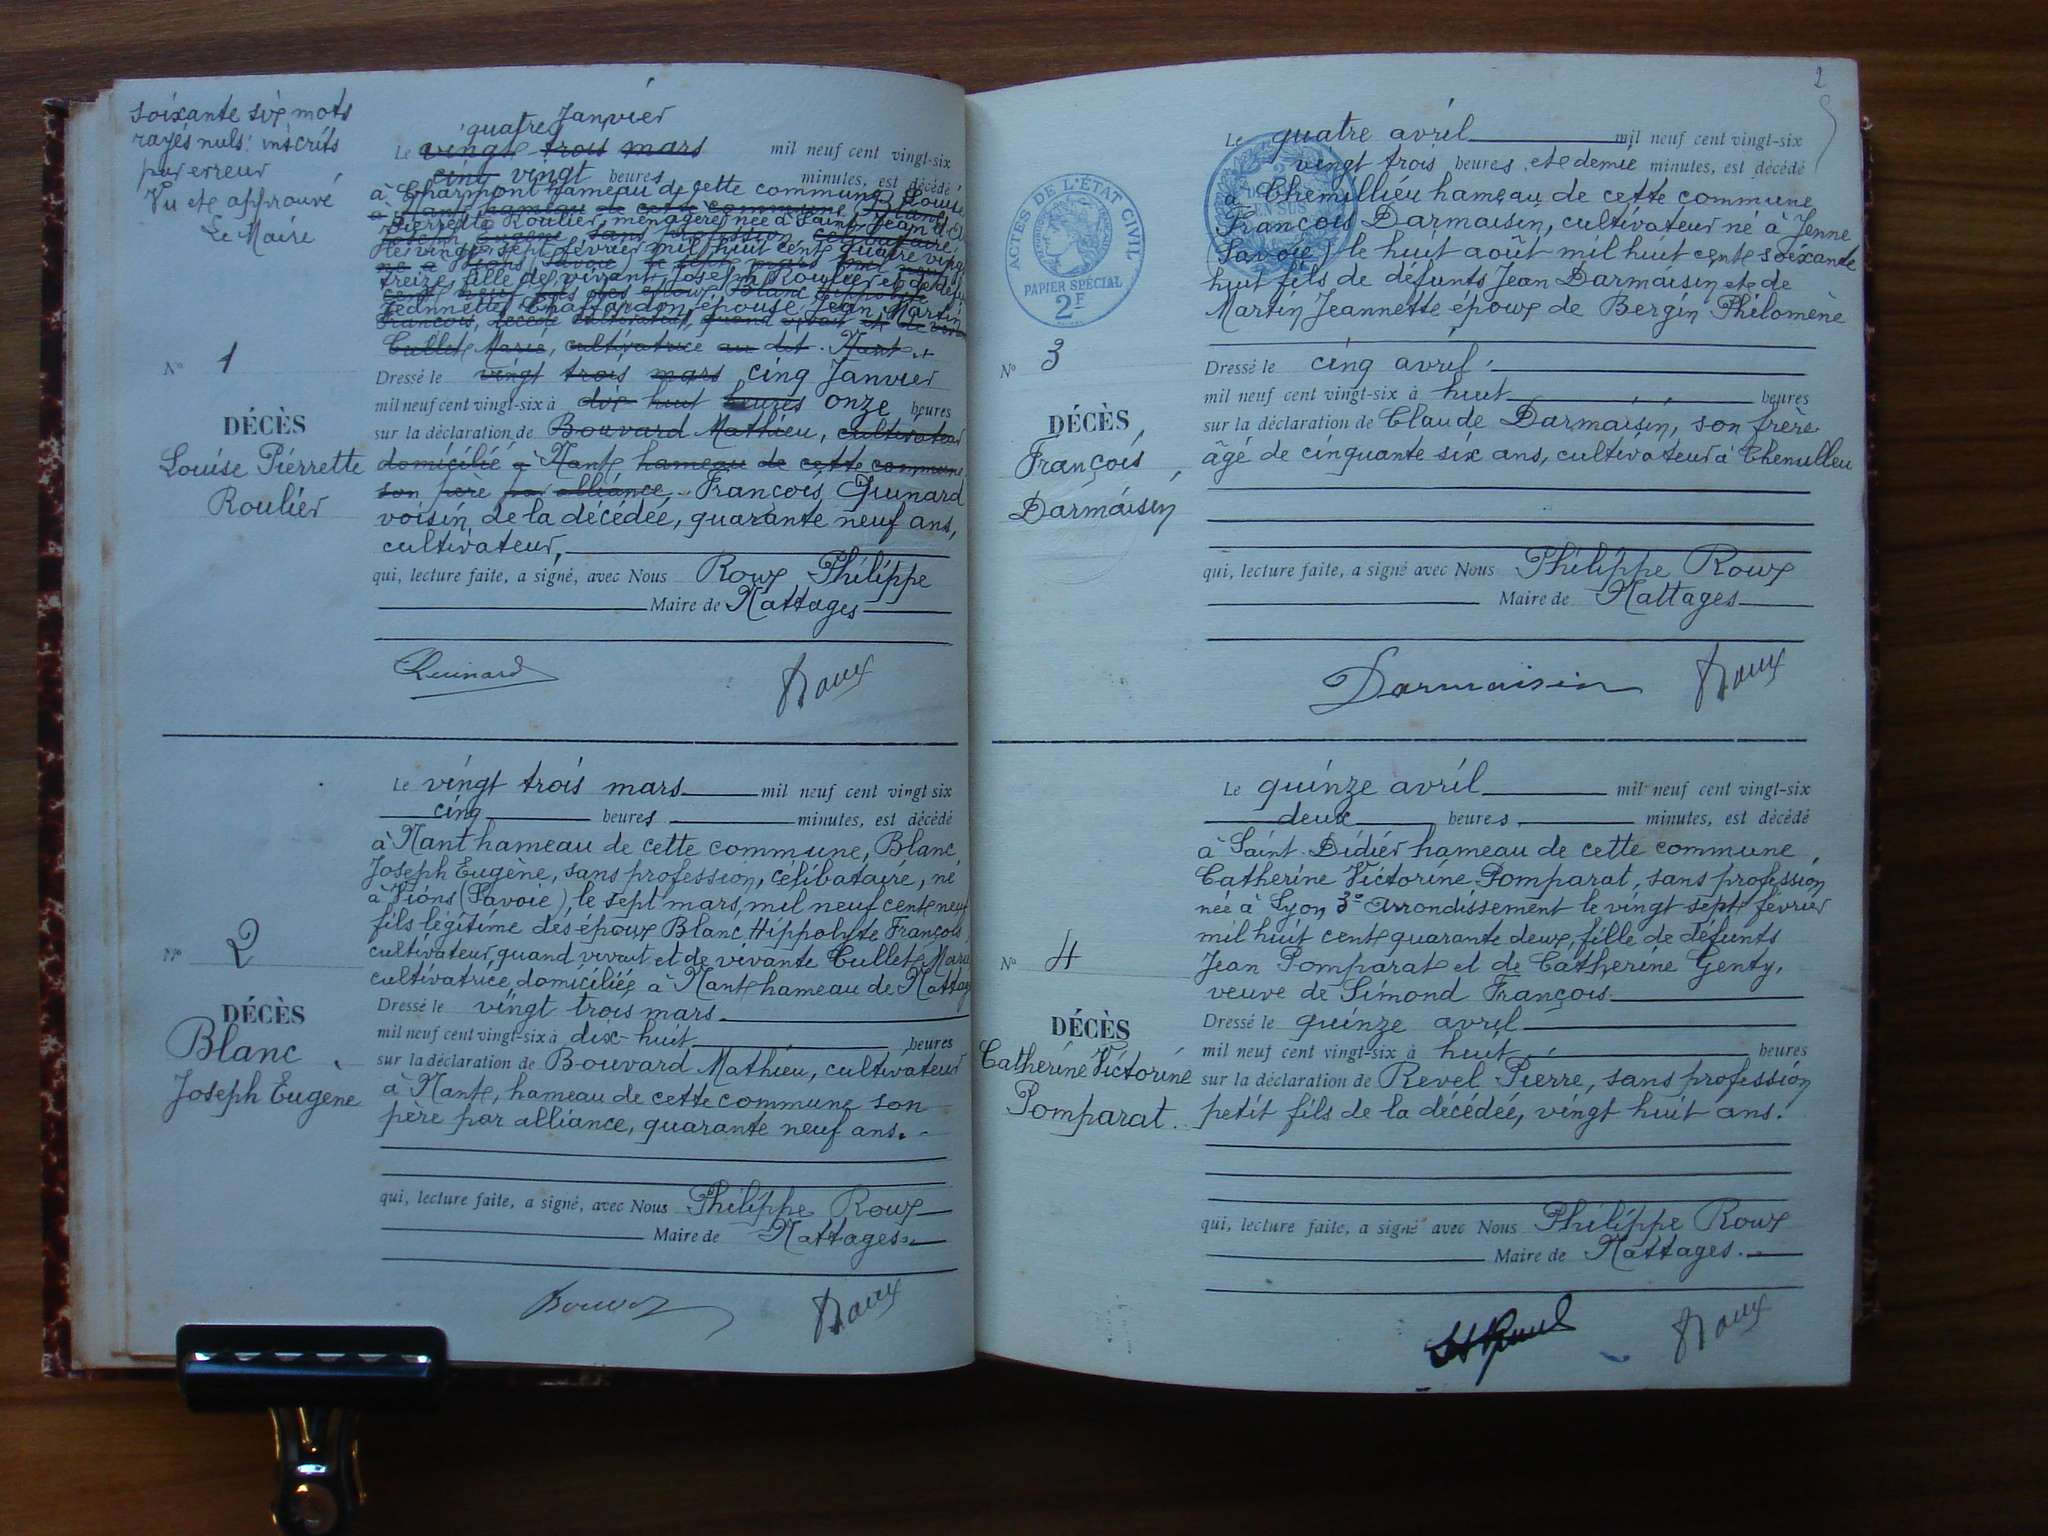 soixante six mots
rayés nuls inscrits
par erreur
Vu et approuvé
Le Maire
quatre Janvier
Le vingt trois mars mil neuf cent vingt-six
cinq vingt heures minutes, est décédé
à Charmont hameau de cette commune, Louise
Pierrette Roulier, ménagère née à Saint Jean
le vingt sept février mil huit cent quatre vingt
treize, fille de vivant Joseph Roulier et de
Jeannette épouse Jean Martin
Cullet Marie, cultivatrice au dit Nant
Nº 1
Dressé le vingt trois mars cinq Janvier
mil neuf cent vingt-six à dix huit heures onze heures
DÉCÈS
sur la déclaration de Bouvard Mathieu, cultivateur
Louise Pierrette
domicilié à Nant hameau de cette commune
Roulier
son père par alliance, François Quinard
voisin de la décédée, quarante neuf ans,
cultivateur,
qui, lecture faite, a signé, avec Nous Roux Philippe
Maire de Nattages
Quinard Roux
Le vingt trois mars mil neuf cent vingt-six
cinq heures minutes, est décédé
à Nant hameau de cette commune, Blanc
Joseph Eugène, sans profession, célibataire, né
à Vions (Savoie), le sept mars, mil neuf cent neuf
fils légitime des époux Blanc Hippolyte François,
cultivateur, quand vivait et de vivante Cullet Marie
Nº 2
cultivatrice, domiciliée à Nant hameau de Nattages
DÉCÈS
Dressé le vingt trois mars
mil neuf cent vingt-six à dix-huit heures
Blanc
sur la déclaration de Bouvard Mathieu, cultivateur
Joseph Eugène
à Nant, hameau de cette commune son
père par alliance, quarante neuf ans.
qui, lecture faite, a signé, avec Nous Philippe Roux
Maire de Nattages
Roux
2
Le quatre avril mil neuf cent vingt-six
vingt trois heures et demie minutes, est décédé
ACTES DE L'ÉTAT CIVIL
PAPIER SPÉCIAL
2F
EN SUS
à Chemillieu hameau de cette commune
François Darmaisin, cultivateur né à Yenne
(Savoie) le huit août mil huit cent soixante
huit fils de defunts Jean Darmaisin et de
Martin Jeannette époux de Bergin Philomène
Nº 3
Dressé le cinq avril
mil neuf cent vingt-six à huit heures
DÉCÈS
sur la déclaration de Claude Darmaisin, son frère
François
âgé de cinquante six ans, cultivateur à Chemillieu
Darmaisin
qui, lecture faite, a signé avec Nous Philippe Roux
Maire de Nattages
Darmaisin Roux
Le quinze avril mil neuf cent vingt-six
deux heures minutes, est décédé
à Saint Didier hameau de cette commune,
Catherine Victorine Pomparat, sans profession
née à Lyon 3e Arrondissement le vingt sept fevrier
mil huit cent quarante deux, fille de defunts
Nº 4
Jean Pomparat et de Catherine Genty,
veuve de Simond François
DÉCÈS
Dressé le quinze avril
mil neuf cent vingt-six à huit heures
Catherine Victorine
sur la déclaration de Revel Pierre, sans profession
Pomparat
petit fils de la décédée, vingt huit ans.
qui, lecture faite, a signé avec Nous Philippe Roux
Maire de Nattages
Roux